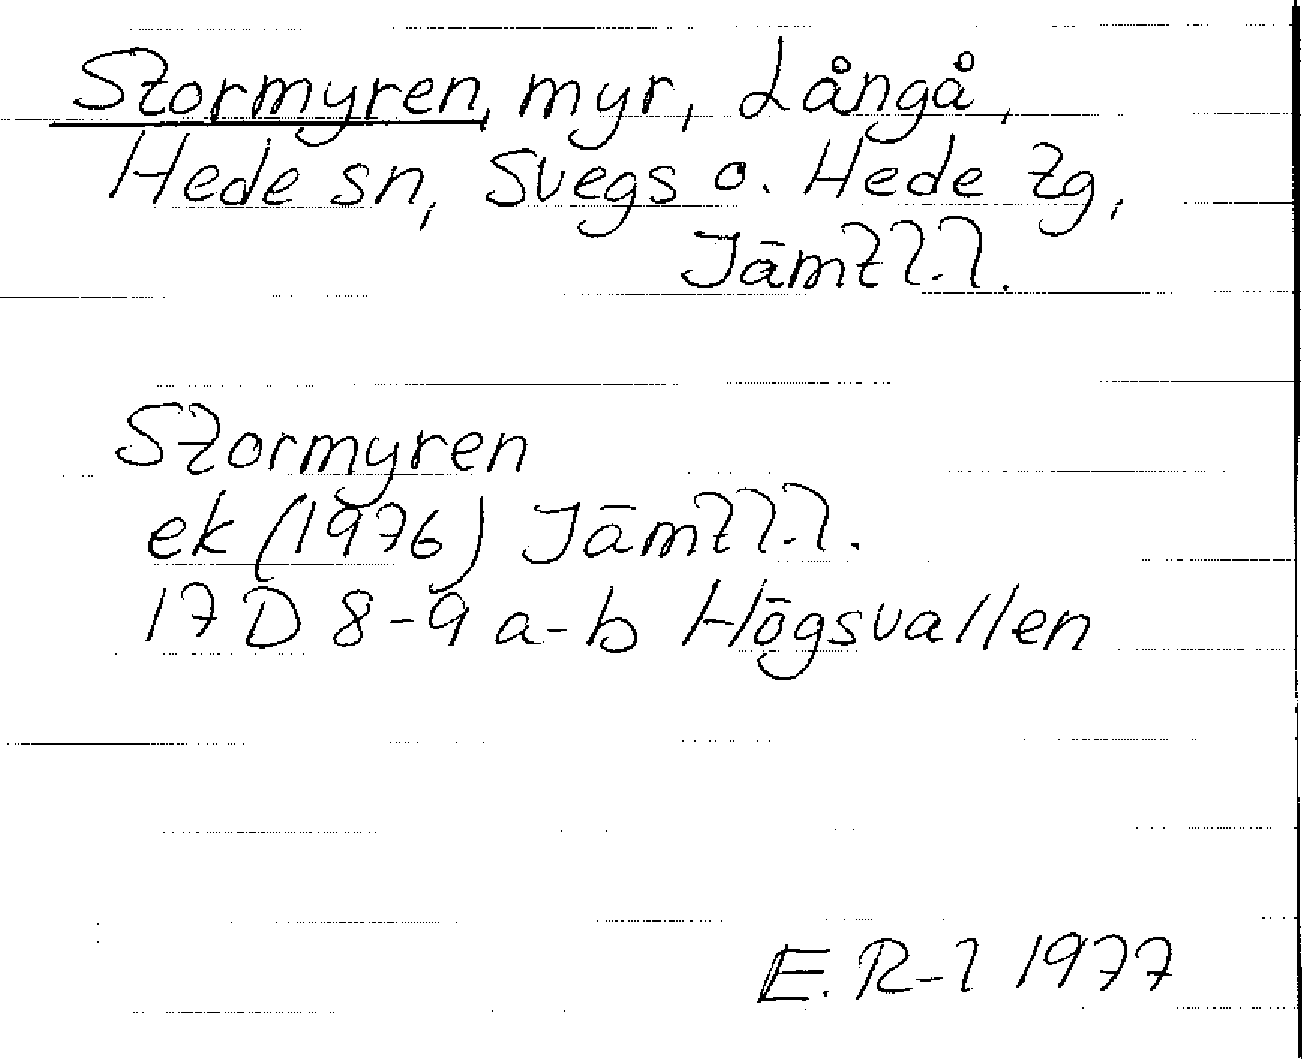 Stormyren, myr, Långå,
Hede sn, Svegs o. Hede tg,
Jämtl.l.
Stormyren
ek (1976) Jämtl.l.
17D 8-9 a-b Högsvallen
E. R-l 1977